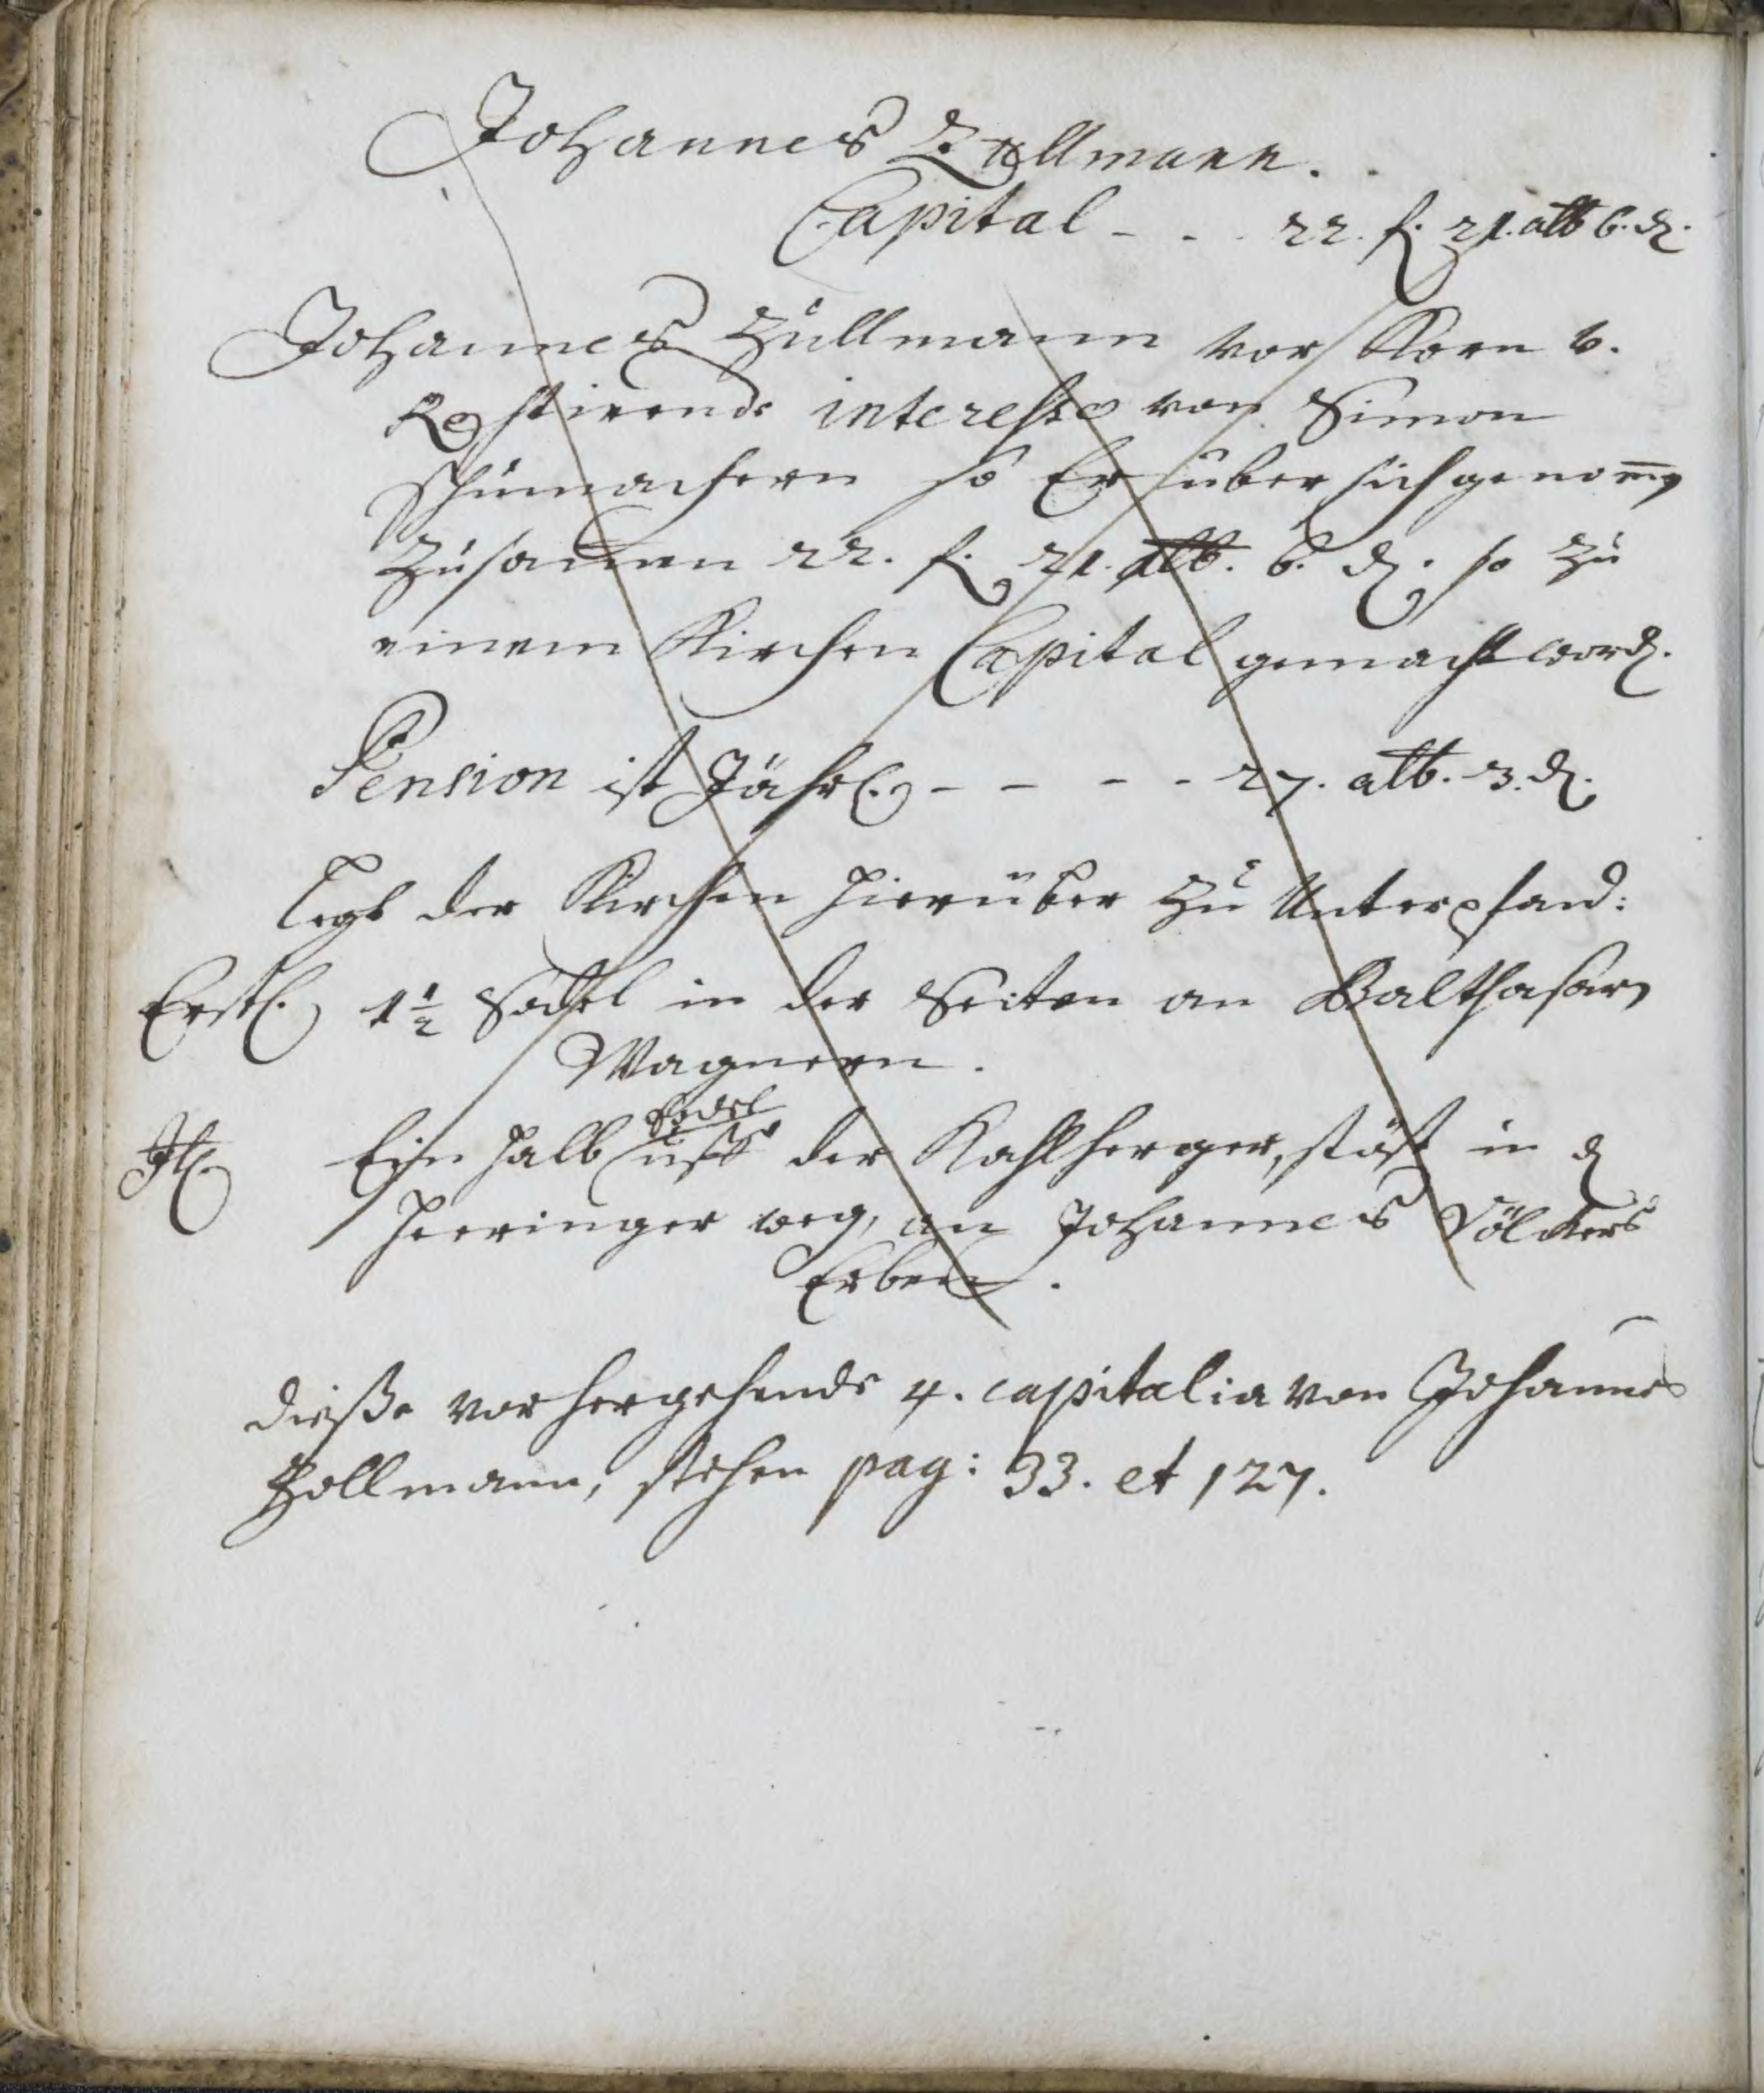 Johannes Züllmann.
Capital - - - 22. f. 21. alb 6. d.
Johannes Züllmann vor Korn v.
Restirende interesse von Simon
Schumachern so Er über sich genom̅en
Zusammen 22. f. 21. alb. 6. d. so zu
einem Kirchen Capital gemacht word.
Pension ist Jährl. - - - - 27. alb. 3. d.
Legt der Kirchen hierüber zu Unterpfand:
Erstl. 1½ Sodel in der Seiten an Balthasarn
Wagnern.
sodel
It. Ein halb uff der, stöst in d
weg, an Johannes Völckers
Erben.
dieße vorhergehende 4. capitalia von Johannes
Zollmann, stehen pag: 33. et 127.